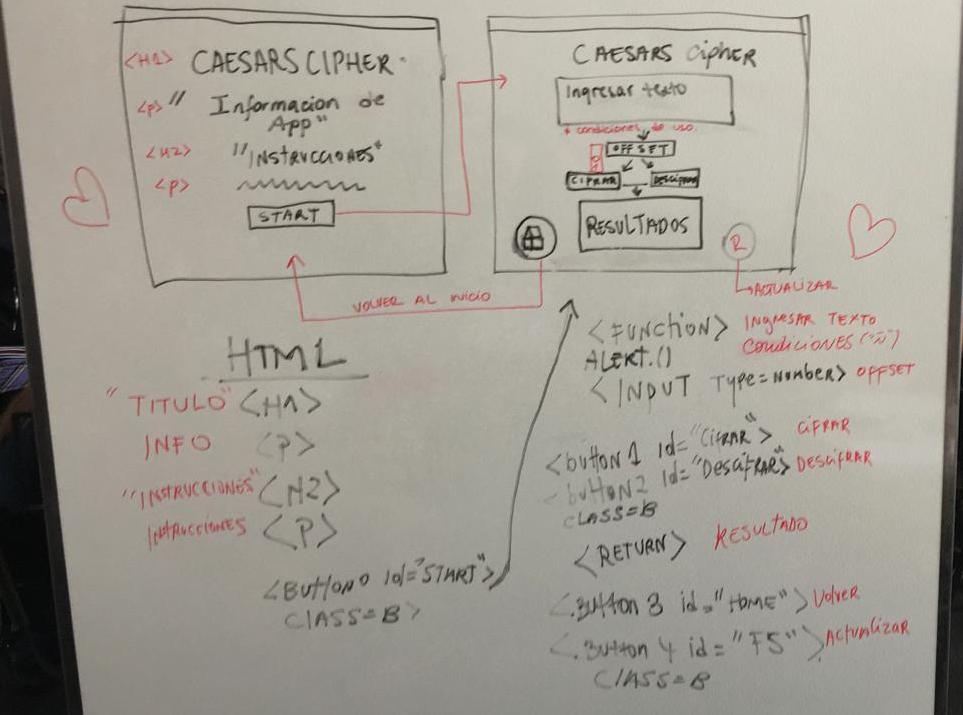 <H1> CAESARS CIPHER
<p> "Informacion de
App"
<H2> "INSTRUCCIONES"
<p>
START
CAESARS CipHER
Ingresar texto
* condiciones de uso.
OFFSET
CIFRAR
DESCIFRAR
RESULTADOS
R
VOLVER AL INICIO
ACTUALIZAR
HTML
"TITULO" <H1>
INFO <P>
"INSTRUCCIONES" <H2>
INSTRUCCIONES <P>
<BUTTON0 id="START">
CLASS=B>
<FUNCTION> INgRESAR TEXTO
ALERT.() CONDICIONES ("ñ")
<INPUT Type=Number> OFFSET
<button1 id="CiFRAR"> CiFRAR
<button2 id="DESCiFRAR"> DESCIFRAR
CLASS=B
<RETURN> RESULTADO
<.BUTTON 3 id="HOME"> Volver
<.BUTTON 4 id="F5"> Actualizar
CLASS=B